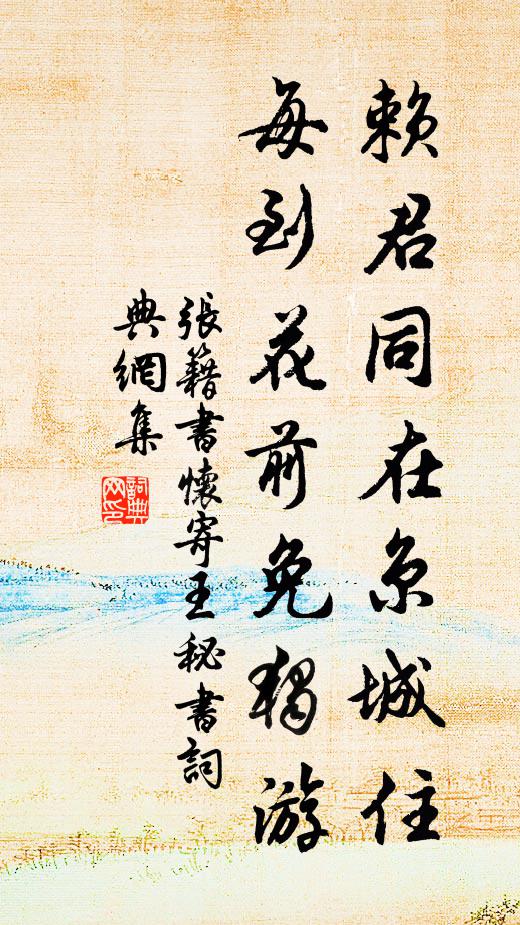 賴君同在京城住
每到花前免獨游
張籍書懷寄王秘書詞
典網集
詞典網印